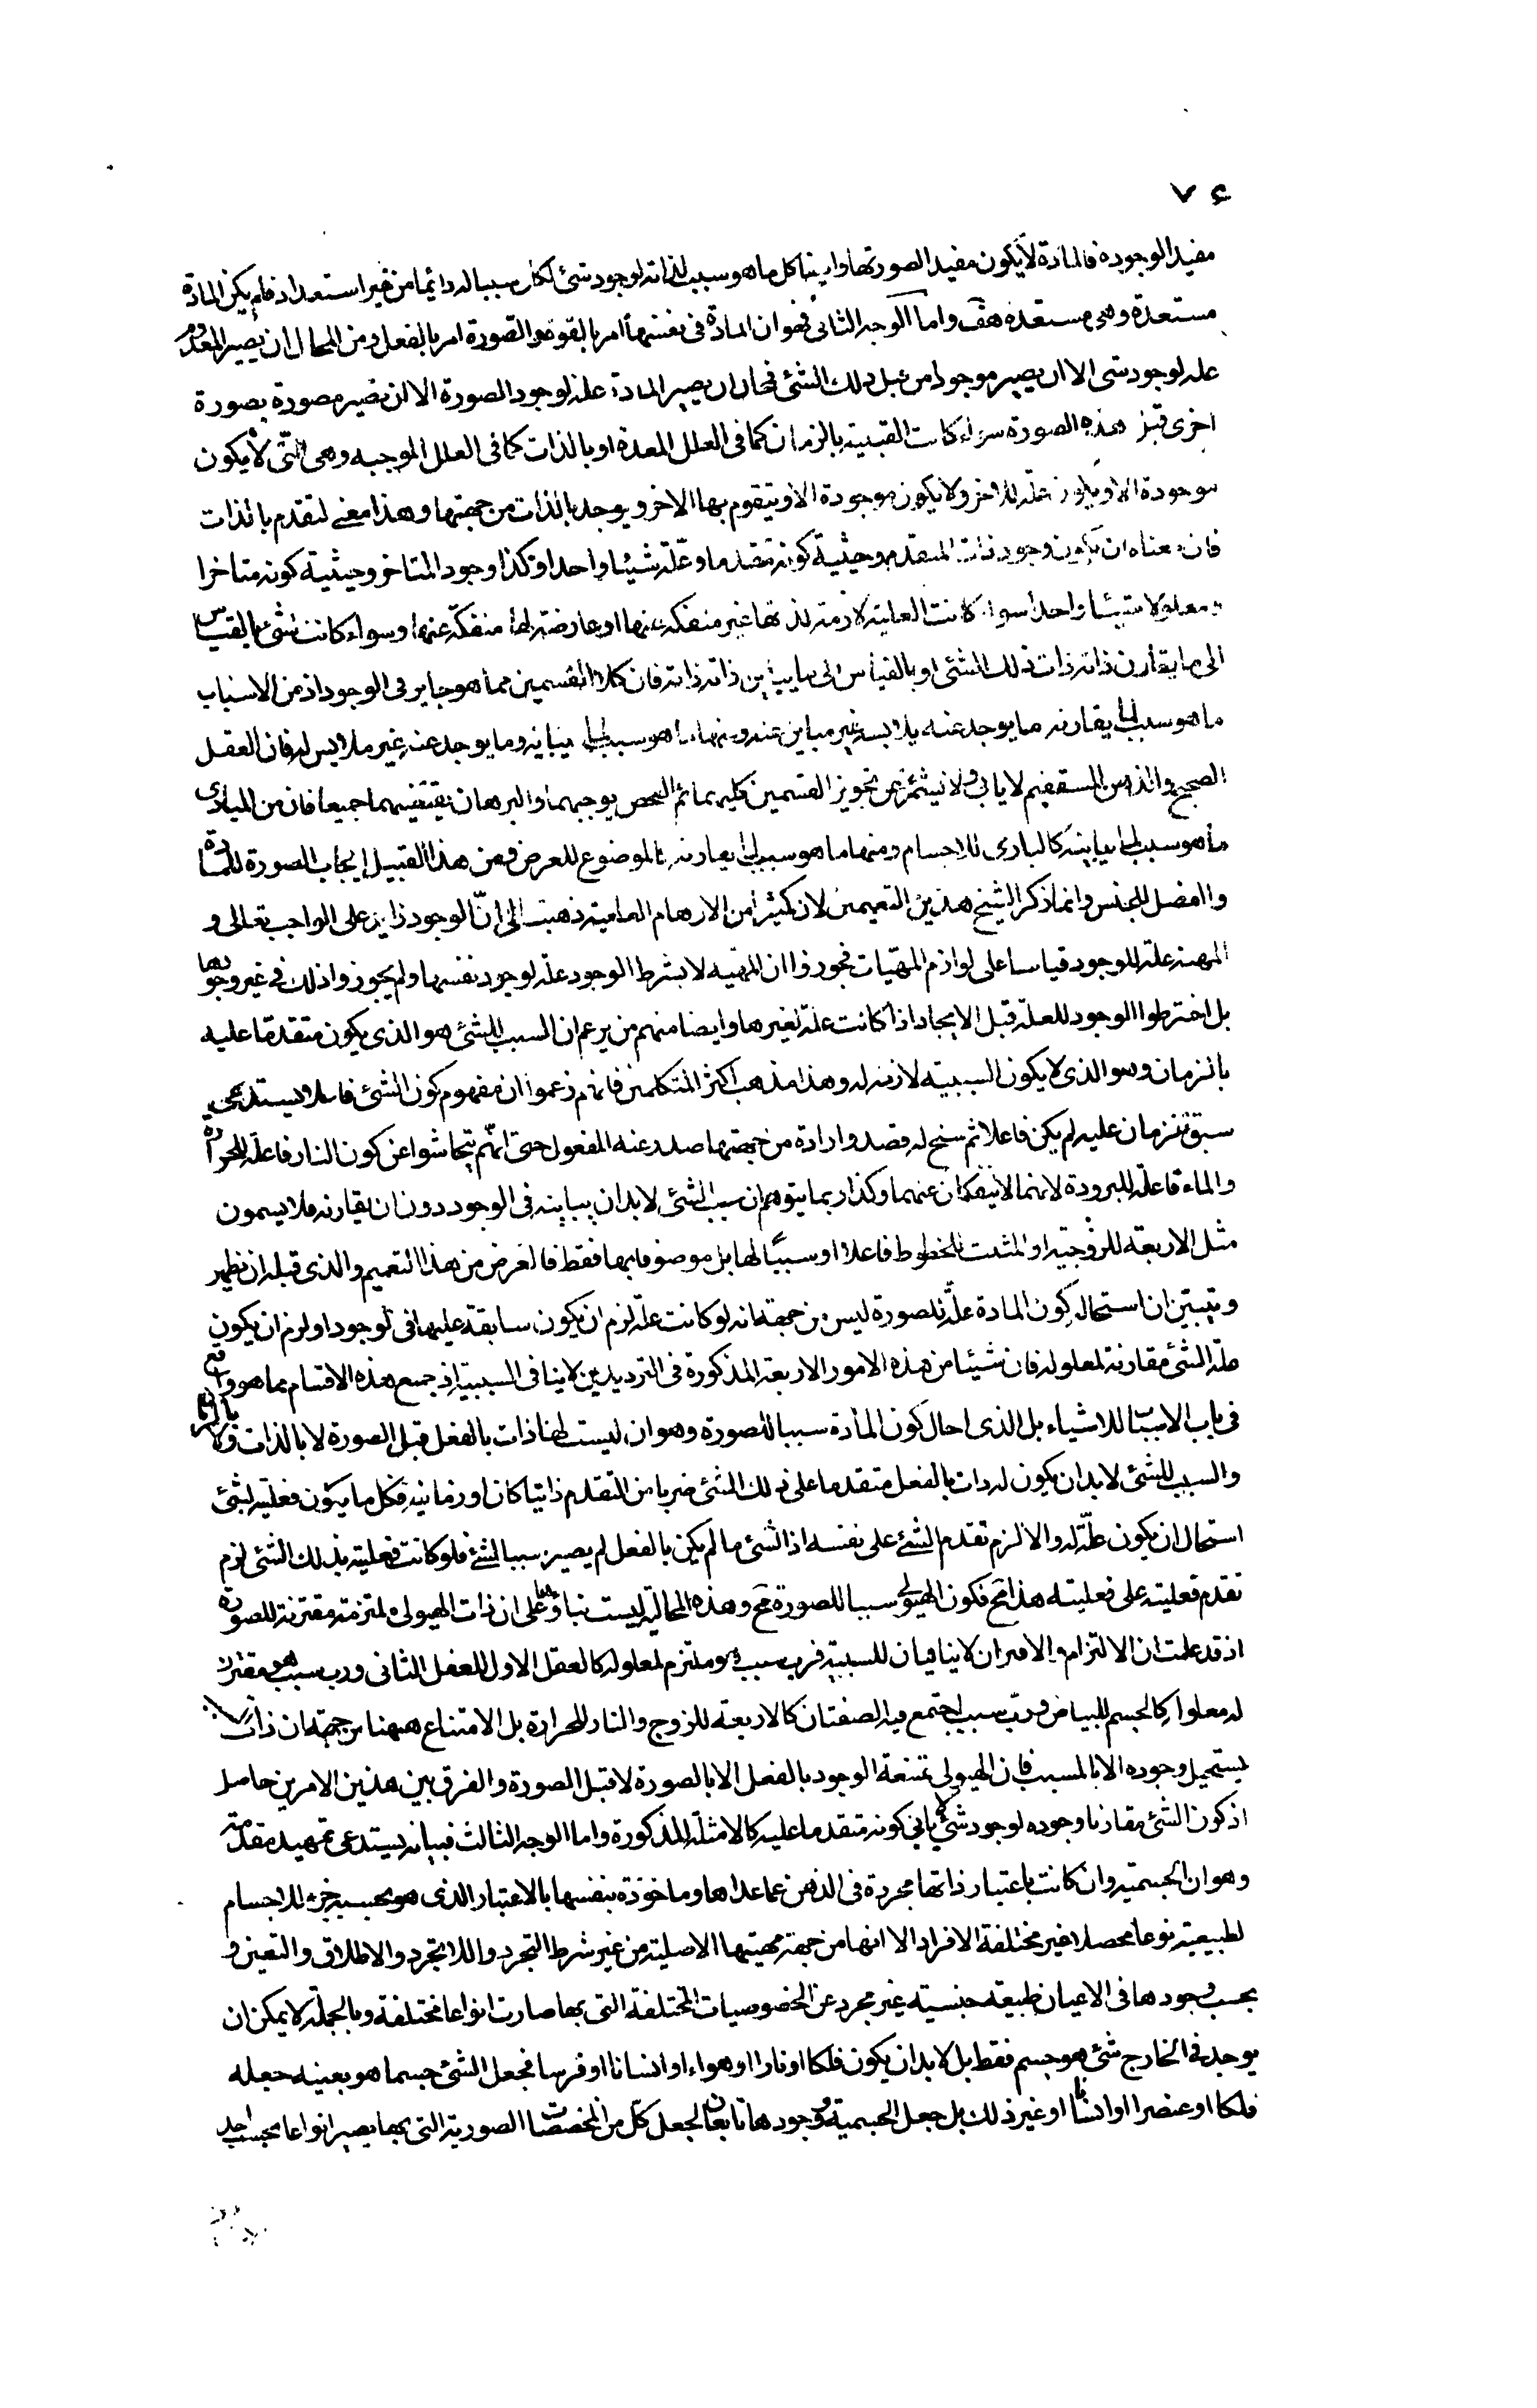 ٧٤
مفيد الوجوده فالمادة لا يكون مفيد الصورتها وايضا كل ما هو سبب لذاته لوجود شئ لكان سببا له دائما من غير استعداد فلم يكن المادة
مستعدة وهى مستعدة هف واما الوجه الثانى فهو ان المادة فى نفسها امر بالقوة والصورة امر بالفعل ومن المحال ان يصير المعدوم
علة لوجود شى الا ان يصير موجودا من قبل ذلك الشئ فحال ان يصير المادة علة لوجود الصورة الا ان تصير مصورة بصورة
اخرى قبل هذه الصورة سواء كانت القبلية بالزمان كما فى العلل المعدة او بالذات كما فى العلل الموجبه وهى التى لا يكون
موجودة الا ويكون علة للاخر ولا يكون موجودة الا ويتقوم بها الاخر ويوجد بالذات من جهتها وهذا معنى التقدم بالذات
فان معناه ان يكون وجود ذات المتقدم وحيثية كونه متقدما وعلة شيئا واحدا وكذا وجود المتاخر وحيثية كونه متاخرا
ومعلولا شيئا واحدا سواء كانت العلية لازمة لذاتها غير منفكة عنها او عارضة لها منفكة عنها وسواء كانت لشئ بالقياس
الى ما يقارن ذاته ذات ذلك الشئ او بالقياس الى ما يباين ذاته ذاته فان كلا القسمين مما هو جايز فى الوجود اذ من الاسباب
ما هو سبب لما يقارنه مما يوجد عنه يلابسه غير مباين عنه ومنها ما هو سبب لما يباينه وما يوجد عنه غير ملابس له فان العقل
الصحيح والذهن المستقيم لا يابى ولا يشمئز عن تجويز القسمين كليهما ثم الفحص يوجبهما والبرهان يقتضيهما جميعا فان من المبادى
ما هو سبب لما يباينه كالبارى للاجسام ومنها ما هو سبب لما يقارنه كالموضوع للعرض ومن هذا القبيل ايجاب الصورة للمادة
والفصل للجنس وانما ذكر الشيخ هذين التعميمين لان كثيرا من الاوهام العامية ذهبت الى ان الوجود زايد على الواجب تعالى و
المهية علة للوجود قياسا على لوازم المهيات فجوزوا ان المهية لا بشرط الوجود علة لوجود نفسها ولم يجوزوا ذلك فى غير وجودها
بل اشترطوا الوجود للعلة قبل الايجاد اذا كانت علة لغيرها وايضا منهم من يزعم ان السبب للشئ هو الذى يكون متقدما عليه
بالزمان وهو الذى لا يكون السببية لازمة له وهذا مذهب اكثر المتكلمين فانهم زعموا ان مفهوم كون الشئ فاعلا يستدعى
سبق زمان عليه لم يكن فاعلا ثم سنح له قصد وارادة من جهتها صدر عنه المفعول حتى انهم يتحاشوا عن كون النار فاعلة للحرارة
والماء فاعلة للبرودة لانهما لا ينفكان عنهما وكذا ربما يتوهم ان سبب الشئ لا بد ان يباينه فى الوجود دون ان يقارنه فلا يسمون
مثل الاربعة للزوجية او المثلث للخطوط فاعلا او سببا لها بل موصوفا بها فقط فالغرض من هذا التعميم والذى قبله ان يظهر
ويتبين ان استحالة كون المادة علة للصورة ليس من جهة انه لو كانت علة لزم ان يكون سابقة عليها فى الوجود او لزم ان يكون
علة الشئ مقارنة لمعلوله فان شيئا من هذه الامور الاربعة المذكورة فى الترديدين لا ينافى السببية اذ جميع هذه الاقسام مما هو واقع
فى باب الاسباب للاشياء بل الذى احال كون المادة سببا للصورة وهو ان ليست لها ذات بالفعل قبل الصورة لا بالذات ولا بالزمان
والسبب للشئ لا بد ان يكون له ذات بالفعل متقدما على ذلك الشئ ضربا من التقدم ذاتيا كان او زمانيه فكل ما يكون فعليته بشئ
استحال ان يكون علة له والا لزم تقدم الشئ على نفسه اذ الشئ ما لم يكن بالفعل لم يصير سببا لشئ فلو كانت فعليته بذلك الشئ لزم
تقدم فعليته على فعليته هذا مح فكون الهيولى سببا للصورة مح وهذه المحالية ليست بناؤها على ان ذات الهيولى ملتزمة مقترنة للصورة
اذ قد علمت ان الالتزام والاقتران لا ينافيان للسببية فرب سبب هو ملتزم لمعلوله كالعقل الاول للعقل الثانى ورب سبب هو مقترن
له معلوله كالجسم للبياض ورب سبب اجتمع فيه الصفتان كالاربعة للزوج والنار للحرارة بل الامتناع ههنا من جهة ان ذات
يستحيل وجوده الا بالمسبب فان الهيولى ممتنعة الوجود بالفعل الا بالصورة لا قبل الصورة والفرق بين هذين الامرين حاصل
اذ كون الشئ مقارنا وجوده لوجود شئ لا يابى كونه متقدما عليه كالامثلة المذكورة واما الوجه الثالث فبيانه يستدعى تمهيد مقدمة
وهو ان الجسمية وان كانت باعتبار ذاتها مجردة فى الذهن عما عداها وماخوذة بنفسها بالاعتبار الذى هو بحسبه جزء للاجسام
لطبيعية نوعا محصلا غير مختلفة الافراد الا انها من جهة مهيتها الاصلية من غير شرط التجرد واللاتجرد والاطلاق والتعين و
بحسب وجودها فى الاعيان طبيعة جنسية غير مجرد عن الخصوصيات المختلفة التى بها صارت انواعا مختلفة وبالجملة لا يمكن ان
يوجد فى الخارج شئ هو جسم فقط بل لا بد ان يكون فلكا او نارا او هواء او انسانا او فرسا فجعل الشئ جسما هو بعينه جعله
فلكا او عنصرا او انسانا او غير ذلك بل جعل الجسمية ووجودها تابعان لجعل كل من المخصصات الصورية التى بها يصير انواعا بحسب احد